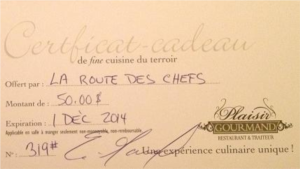 Certficat-cadeau
de fine cuisine du terroir
Offert par : LA ROUTE DES CHEFS
Montant de : 50.00 $
Expiration : 1 DÉC 2014
Applicable en salle à manger seulement non-monnayable, non-remboursable.
Plaisir
GOURMAND
RESTAURANT & TRAITEUR
N° : 319#
Une expérience culinaire unique !